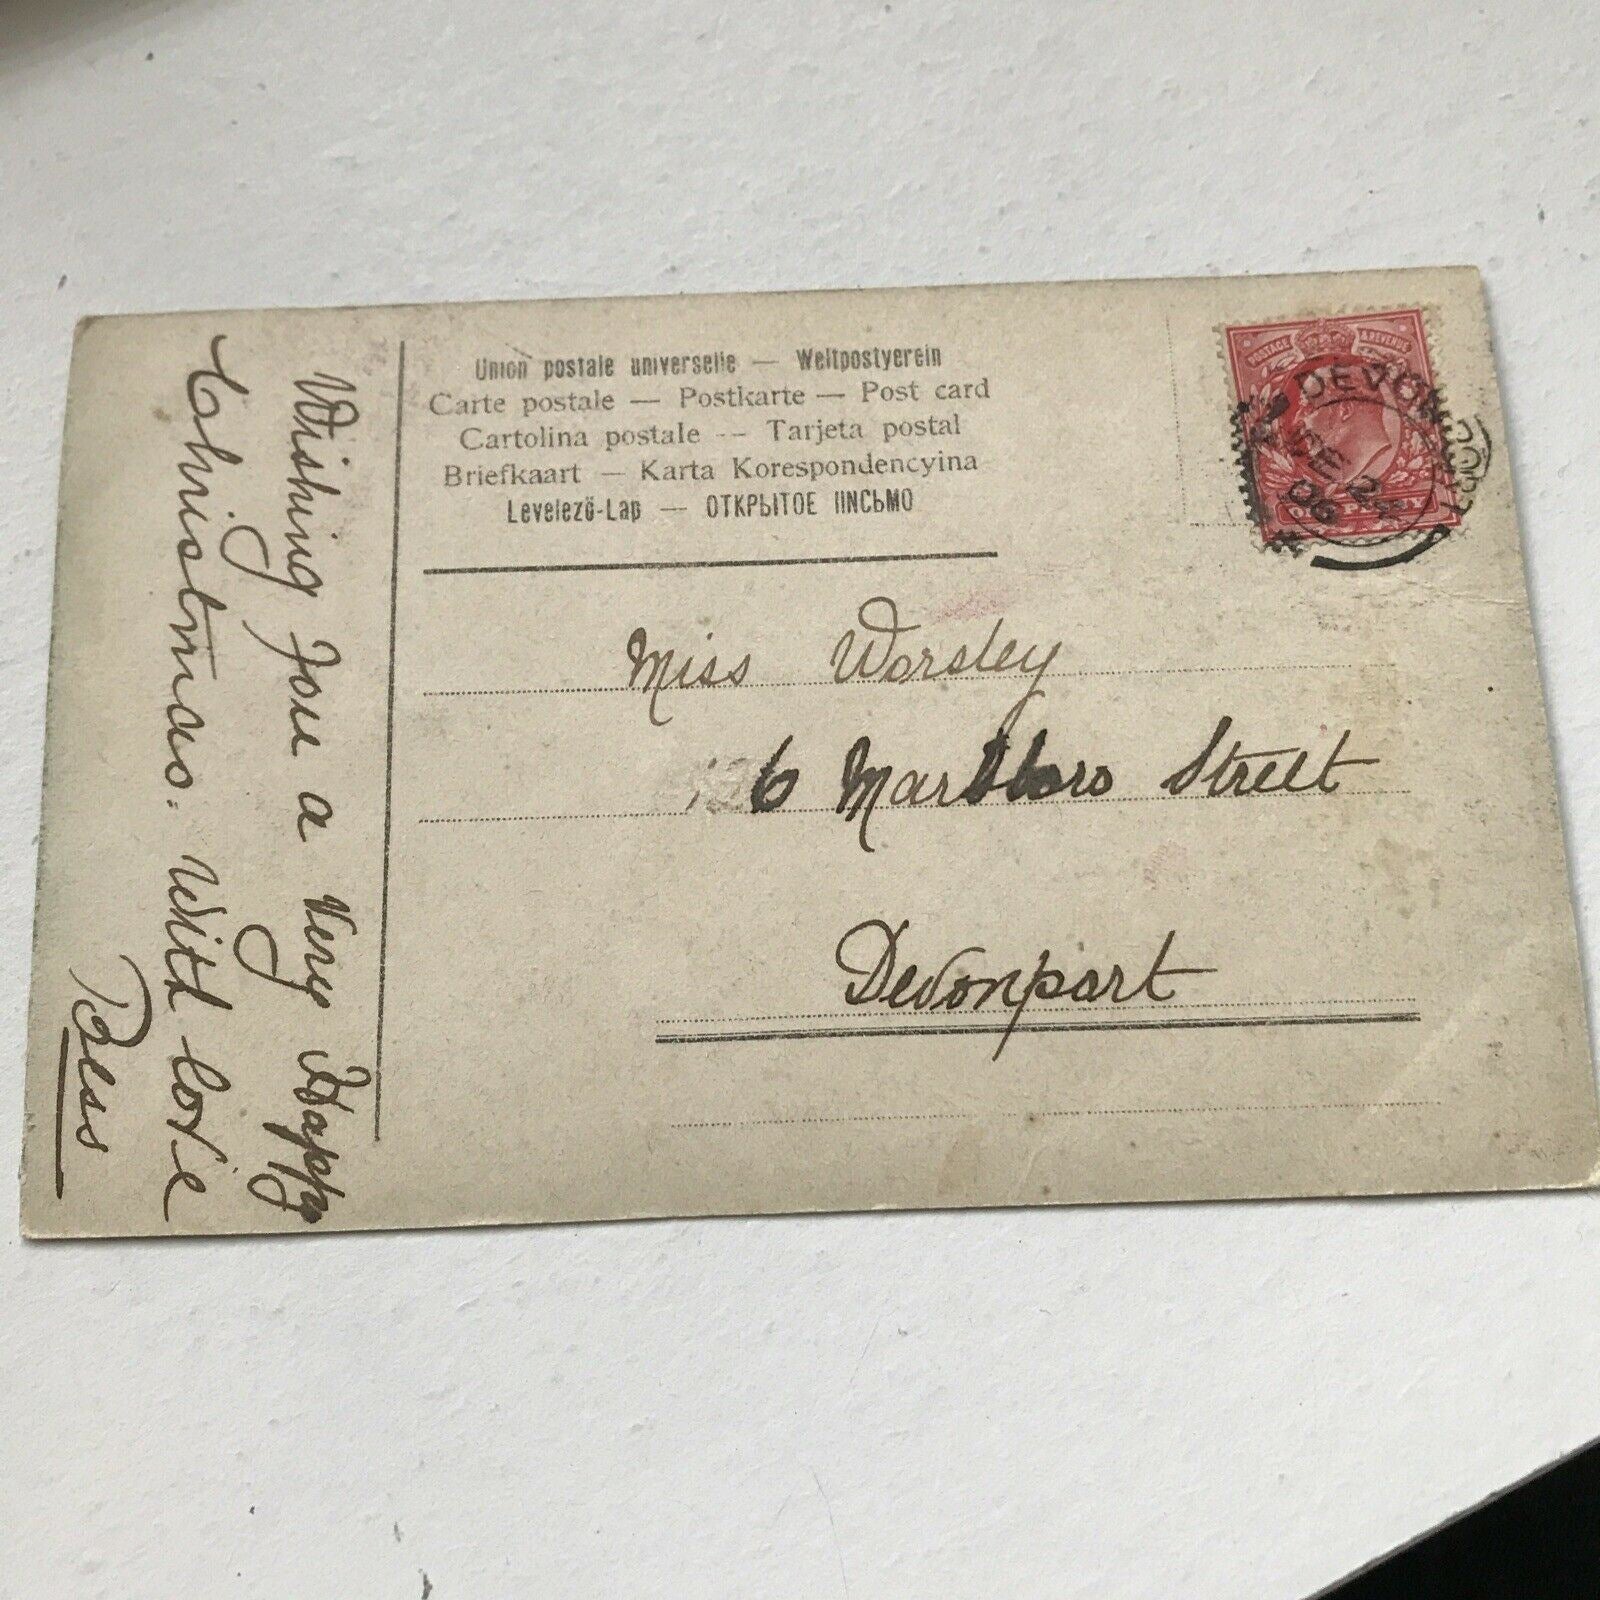 Union postale universelle — Weltpostverein
Carte postale — Postkarte — Post card
Cartolina postale -- Tarjeta postal
Briefkaart — Karta Korespondencyina
Levelező-Lap — ОТКРЫТОЕ ПИСЬМО
POSTAGE & REVENUE
DEVONPORT
DE 24
06
Miss Worsley
6 Marlboro Street
Devonport
Wishing You a Very Happy
Christmas. With love
Bess